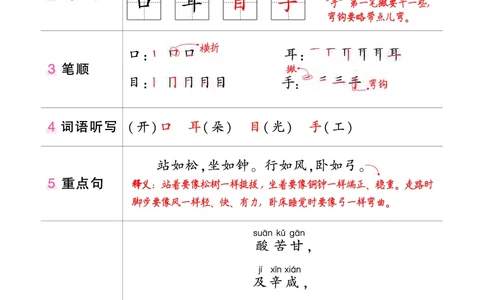 口 耳 目 手
"手"第一笔撇要平一些，
弯钩要略带点儿弯。
3 笔顺
口：丨 𠃍 口 横折
耳：一 丅 丌 耳
目：丨 冂 月 目 目
手：一 二 三 手 撇 弯钩
4 词语听写 (开)口 耳(朵) 目(光) 手(工)
5 重点句
站如松，坐如钟。行如风，卧如弓。
释义：站着要像松树一样挺拔，坐着要像铜钟一样端正、稳重。走路时
脚步要像风一样轻、快、有力，卧床睡觉时要像弓一样弯曲。
suān kǔ gān
酸 苦 甘，
jí xīn xián
及 辛 咸，